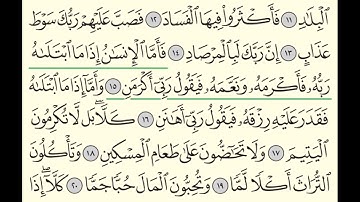 ٱلْبِلَٰدِ ١١ فَأَكْثَرُوا۟ فِيهَا ٱلْفَسَادَ ١٢ فَصَبَّ عَلَيْهِمْ رَبُّكَ سَوْطَ
عَذَابٍ ١٣ إِنَّ رَبَّكَ لَبِٱلْمِرْصَادِ ١٤ فَأَمَّا ٱلْإِنسَٰنُ إِذَا مَا ٱبْتَلَىٰهُ
رَبُّهُۥ فَأَكْرَمَهُۥ وَنَعَّمَهُۥ فَيَقُولُ رَبِّىٓ أَكْرَمَنِ ١٥ وَأَمَّآ إِذَا مَا ٱبْتَلَىٰهُ
فَقَدَرَ عَلَيْهِ رِزْقَهُۥ فَيَقُولُ رَبِّىٓ أَهَٰنَنِ ١٦ كَلَّا ۖ بَل لَّا تُكْرِمُونَ
ٱلْيَتِيمَ ١٧ وَلَا تَحَٰٓضُّونَ عَلَىٰ طَعَامِ ٱلْمِسْكِينِ ١٨ وَتَأْكُلُونَ
ٱلتُّرَاثَ أَكْلًا لَّمًّا ١٩ وَتُحِبُّونَ ٱلْمَالَ حُبًّا جَمًّا ٢٠ كَلَّآ ۖ إِذَا